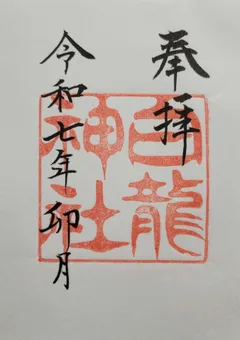 奉拝
白龍
神社
令和七年卯月